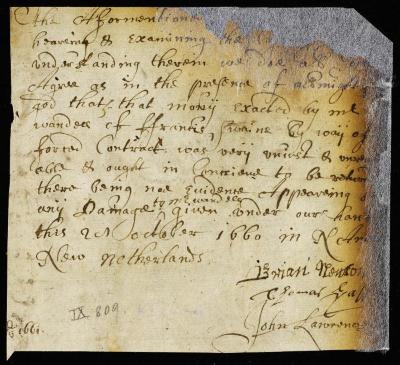 the Aformentione
hearing & Examining the
understanding therein we doe all
Agree as in the presence of almight
god that, that mony Exacted by mr
wandell of ffrancis Swaine by way of
forced Contract was very unjust & unrea
able & ought in Conscience to be return
there being noe Evidence Appeareing of
any Damage to mr wandell given under our hand
this 21 october 1660 in
New Netherlands
Brian Newton
Thomas Hall
John Lawrence
1661.
IX 809